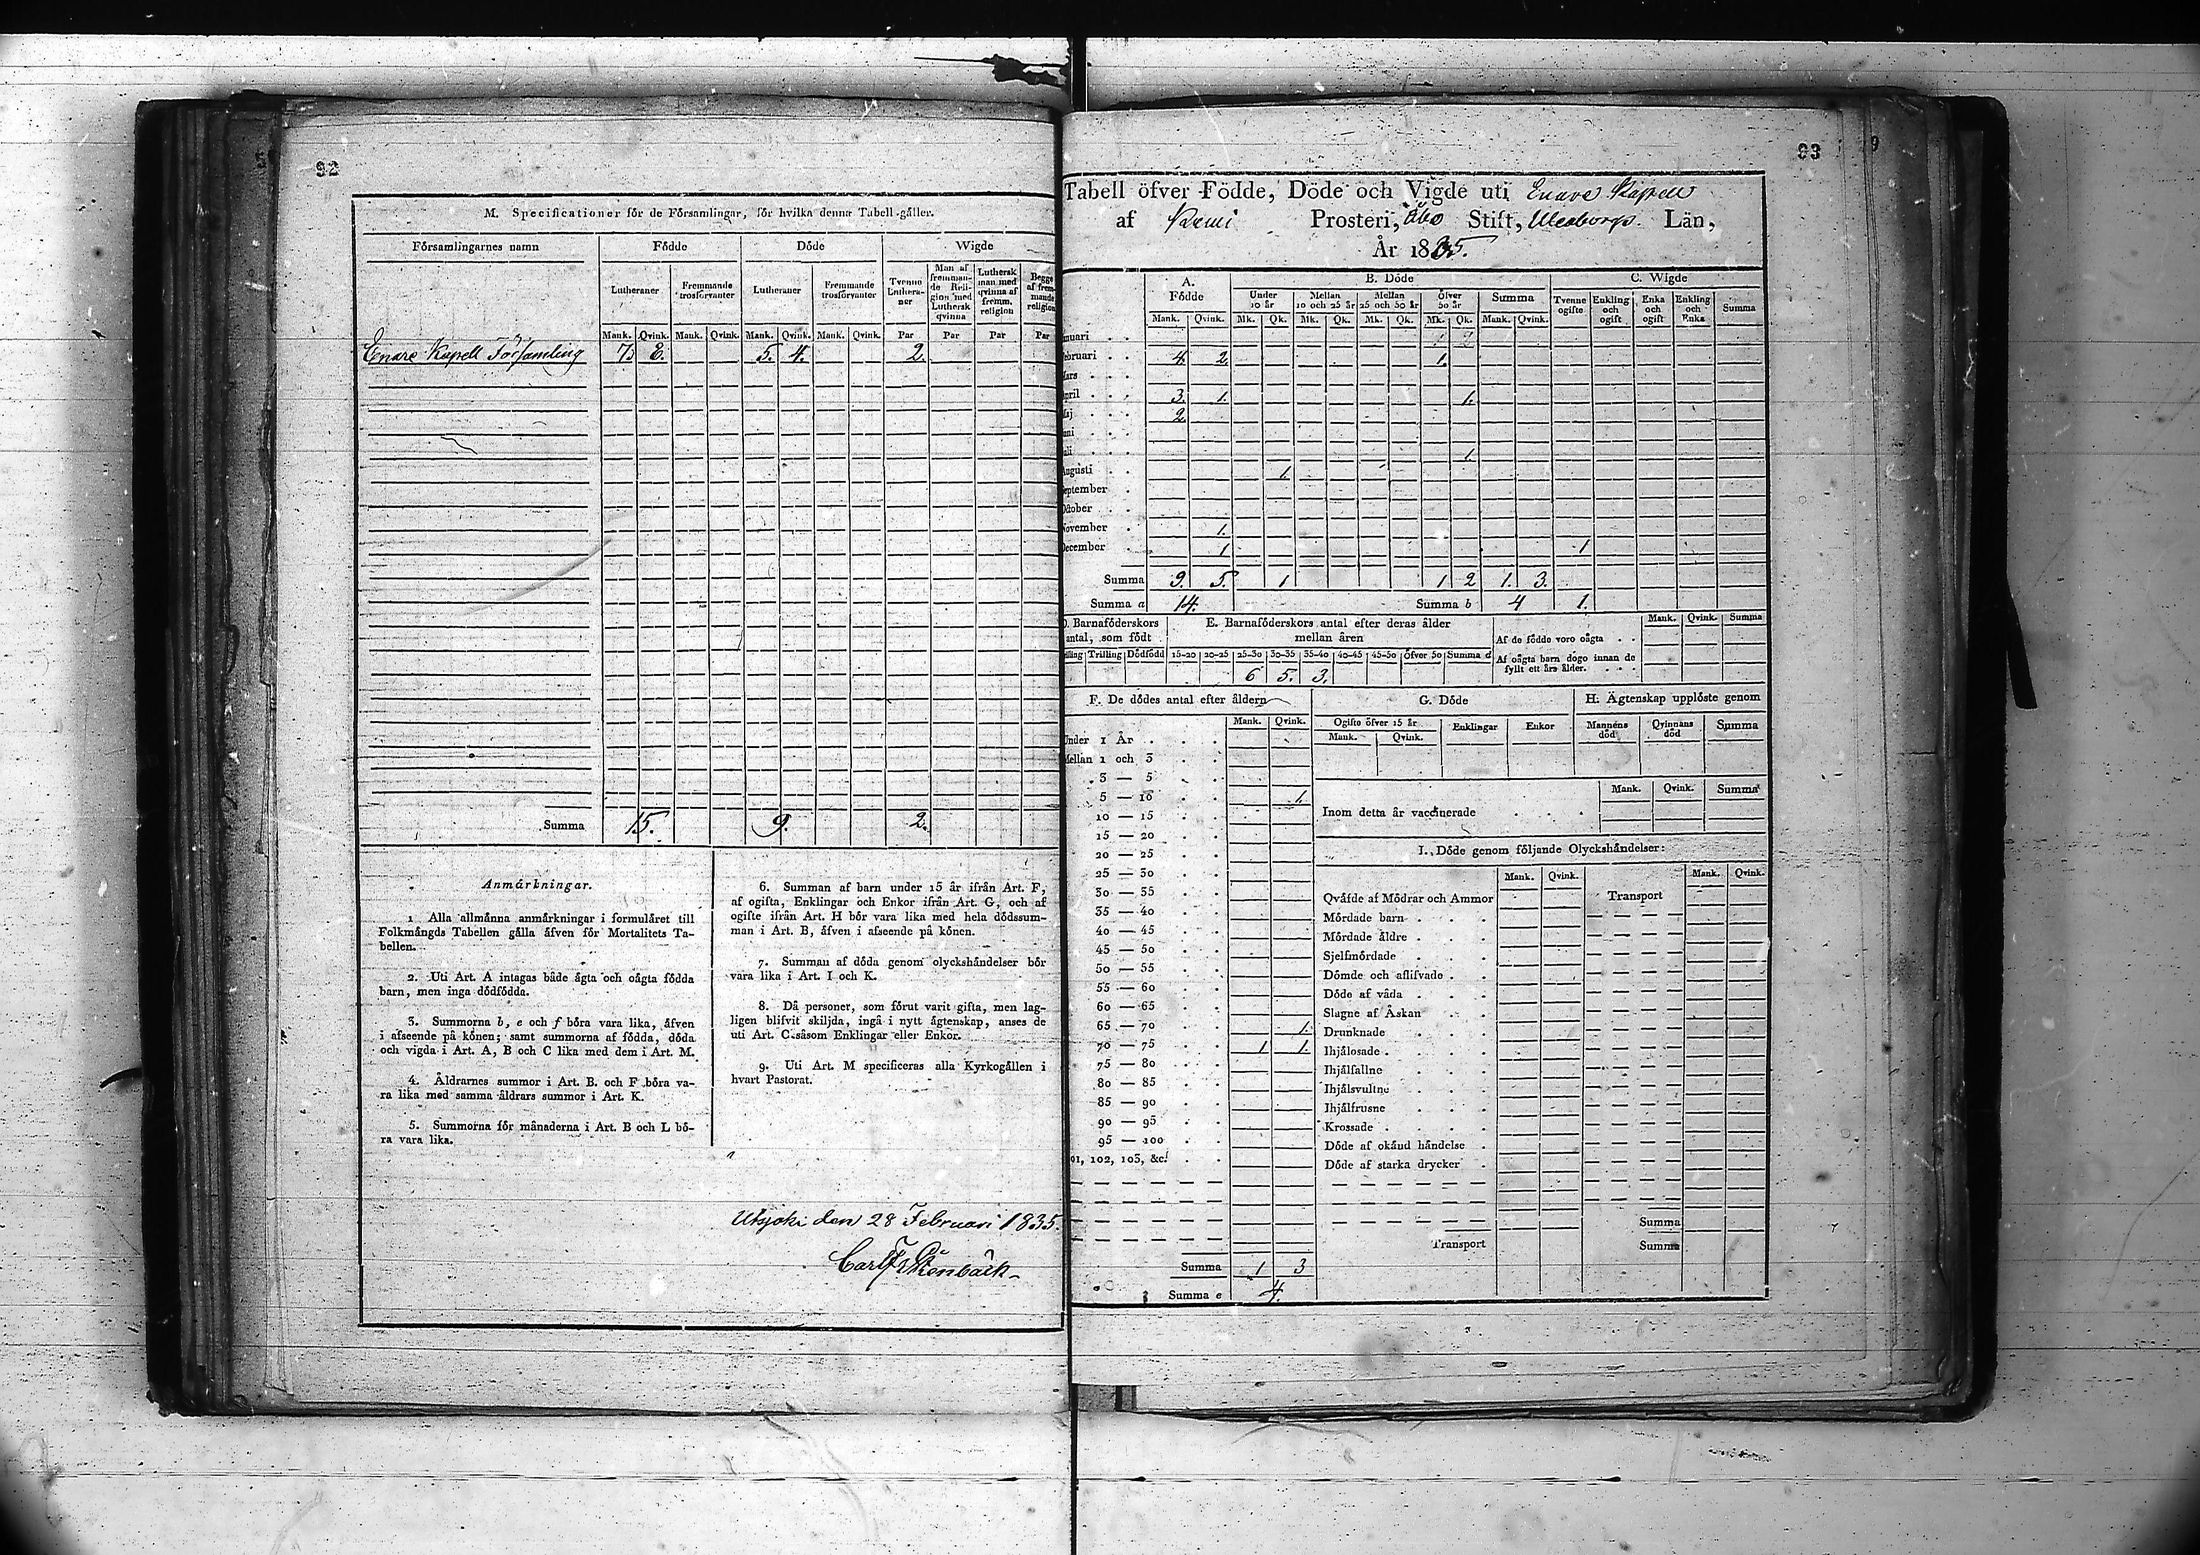 92
M. Specificationer för de Församlingar, för hvilka denna Tabell gäller.
Församlingarnes namn Födde Döde Wigde
Lutheraner Fremmande trosförvanter Lutheraner Fremmande trosförvanter Tvenne Lutheraner Man af fremmande Religion med Luthersk qvinna Luthersk man med qvinna af fremm. religion Begge af fremmande religion
Mank. Qvink. Mank. Qvink. Mank. Qvink. Mank. Qvink. Par Par Par Par
Enare Kapell Församling 7. 8. 5. 4. 2.
Summa 15. 9. 2.
Anmärkningar.
1 Alla allmänna anmärkningar i formuläret till
Folkmängds Tabellen gälla äfven för Mortalitets Ta-
bellen.
2. Uti Art. A intagas både ägta och oägta födda
barn, men inga dödfödda.
3. Summorna b, e och f böra vara lika, äfven
i afseende på könen; samt summorna af födda, döda
och vigda i Art. A, B och C lika med dem i Art. M.
4. Åldrarnes summor i Art. B. och F böra va-
ra lika med samma åldrars summor i Art. K.
5. Summorna för månaderna i Art. B och L bö-
ra vara lika.
6. Summan af barn under 15 år ifrån Art. F,
af ogifta, Enklingar och Enkor ifrån Art. G, och af
ogifte ifrån Art. H bör vara lika med hela dödssum-
man i Art. B, äfven i afseende på könen.
7. Summan af döda genom olyckshändelser bör
vara lika i Art. I och K.
8. Då personer, som förut varit gifta, men lag-
ligen blifvit skiljda, ingå i nytt ägtenskap, anses de
uti Art. C såsom Enklingar eller Enkor.
9. Uti Art. M specificeras alla Kyrkogällen i
hvart Pastorat.
Utsjoki den 28 Februari 1835.
Carl Stenbäck
93
9
Tabell öfver Födde, Döde och Vigde uti Enare Kapell
af Kemi Prosteri, Åbo Stift, Uleaborgs Län,
År 1835.
A. Födde B. Döde C. Wigde
Under 10 år Mellan 10 och 25 år Mellan 25 och 50 år Öfver 50 år Summa Tvenne ogifte Enkling och ogift Enka och ogift Enkling och Enka Summa
Mank. Qvink. Mk. Qk. Mk. Qk. Mk. Qk. Mk. Qk. Mank. Qvink.
nuari
ebruari 4. 2. 1.
Mars
April 3. 1. 1.
Maj 2.
uni
uli 1.
Augusti 1.
September
October
November 1.
December 1. 1
Summa 9. 5. 1 1 2 1. 3.
Summa a 14. Summa b 4 1.
D. Barnaföderskors antal, som födt
illing Trilling Dödfödd
E. Barnaföderskors antal efter deras ålder
mellan åren
15-20 20-25 25-30 30-35 35-40 40-45 45-50 Öfver 50 Summa d
6 5. 3.
Mank. Qvink. Summa
Af de födde voro oägta
Af oägta barn dogo innan de
fyllt ett års ålder.
F. De dödes antal efter åldern
Mank. Qvink.
Under 1 År
Mellan 1 och 3
3 — 5
5 — 10 1.
10 — 15
15 — 20
20 — 25
25 — 30
30 — 35
35 — 40
40 — 45
45 — 50
50 — 55
55 — 60
60 — 65
65 — 70 1.
70 — 75 1 1.
75 — 80
80 — 85
85 — 90
90 — 95
95 — 100
101, 102, 103, &c.
Summa 1 3
Summa e 4.
G. Döde
Ogifte öfver 15 år Enklingar Enkor
Mank. Qvink.
H. Ägtenskap upplöste genom
Mannens död Qvinnans död Summa
Mank. Qvink. Summa
Inom detta år vaccinerade
I. Döde genom följande Olyckshändelser:
Mank. Qvink. Mank. Qvink.
Qväfde af Mödrar och Ammor Transport
Mördade barn
Mördade äldre
Sjelfmördade
Dömde och aflifvade
Döde af våda
Slagne af Åskan
Drunknade
Ihjälosade
Ihjälfallne
Ihjälsvultne
Ihjälfrusne
Krossade
Döde af okänd händelse
Döde af starka drycker
Summa
Transport Summa